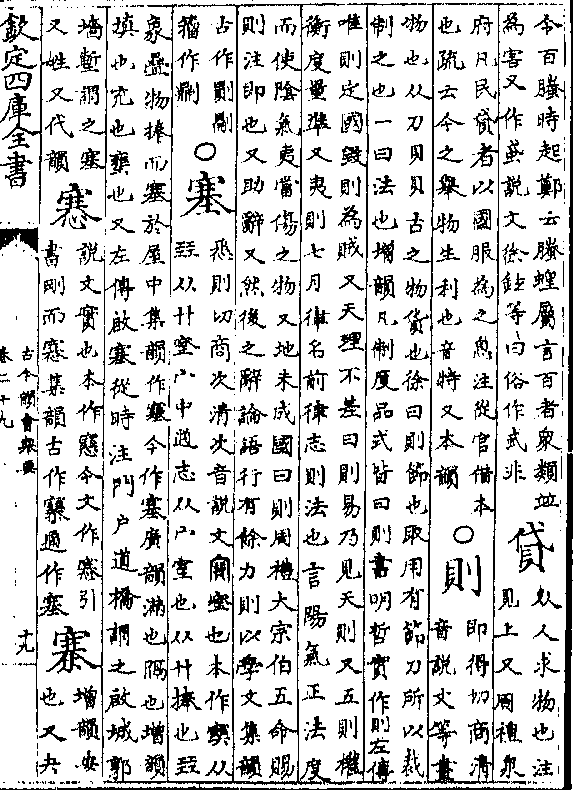 今百螣時起鄭云螣蝗屬言百者衆類並
為害又作蟘説文徐鉉等曰俗作蟘非
貸
从人求物也注
見上又周禮泉
府凡民貸者以國服為之息注從官借本
也疏云今之舉物生利也音特又本韻
○則
即得切商清
音説文等畫
物也从刀貝貝古之物貨也徐曰則節也取用有節刀所以裁
制之也一曰法也増韻凡制度品式皆曰則書明哲實作則左傳
唯則定國毀則為賊又天理不差曰則易乃見天則又五則權
衡度量準又夷則七月律名前律志則法也言陽氣正法度
而使陰氣夷當傷之物又地未成國曰則周禮大宗伯五命賜
則注即也又助辭又然後之辭論語行有餘力則以學文集韻
古作
籀作
○塞
悉則切商次清次音説文窒也本作从
㠭从廾窒宀中遏志从宀窒也从廾捧也㠭
象疊物捧而塞於屋中集韻作今作塞廣韻滿也隔也増韻
填也充也又左傳啟塞從時注門户道橋謂之啟城郭
墻塹謂之塞
又姓又代韻
説文實也本作今文作塞引
書剛而塞集韻古作通作塞
寨
増韻安
也又夬
欽定四庫全書
古今韻會舉要
卷二十九
十九